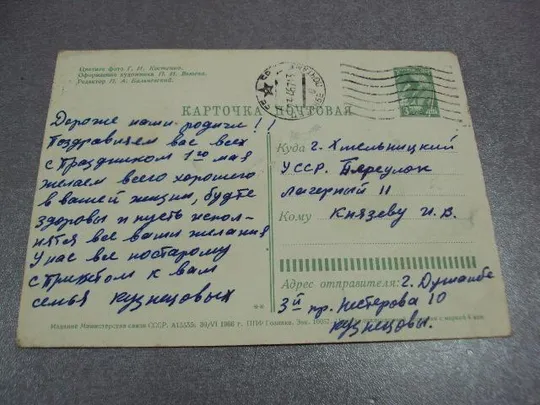 Цветное фото Г. И. Костенко.
Оформление художника П. И.
Редактор Н. А.
КАРТОЧКА ПОЧТОВАЯ
Дорогие наши родные!!
Поздравляем вас всех
с праздником 1го мая
желаем всего хорошего
в вашей жизни, будте
здоровы и пусть испол-
нятся все ваши желания
У нас все постарому
с приветом к вам
семья Кузнецовых
Куда г. Хмельницкий
УССР. Переулок
Лагерный 11
Кому Князеву И. В.
Адрес отправителя: г. Душанбе
3й пр. Нестерова 10
Кузнецовы.
Издание Министерства связи СССР. А13555. 30/VI 1966 г. ППФ Гознака. Зак.